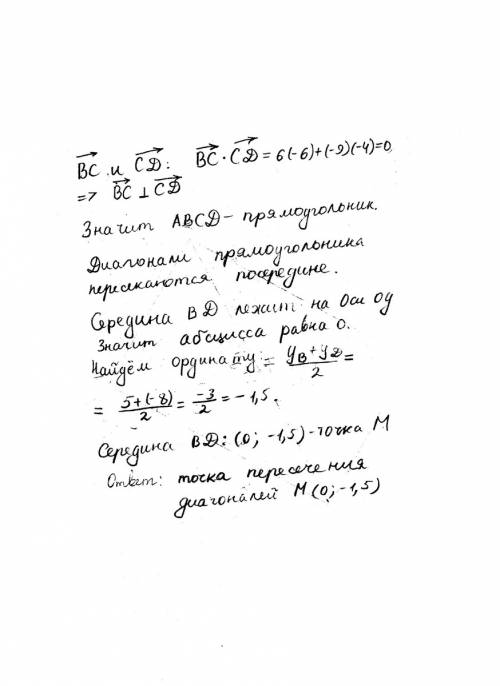 BC и CD: BC · CD = 6(-6)+(-9)(-4)=0
=> BC ⊥ CD
Значит ABCD - прямоугольник.
Диагонали прямоугольника
пересекаются посередине.
Середина BD лежит на оси Oy
Значит абсцисса равна 0.
Найдём ординату: = (yB + yD)/2 =
= (5+(-8))/2 = -3/2 = -1,5.
Середина BD: (0; -1,5) - точка M
Ответ: точка пересечения
диагоналей M (0; -1,5)